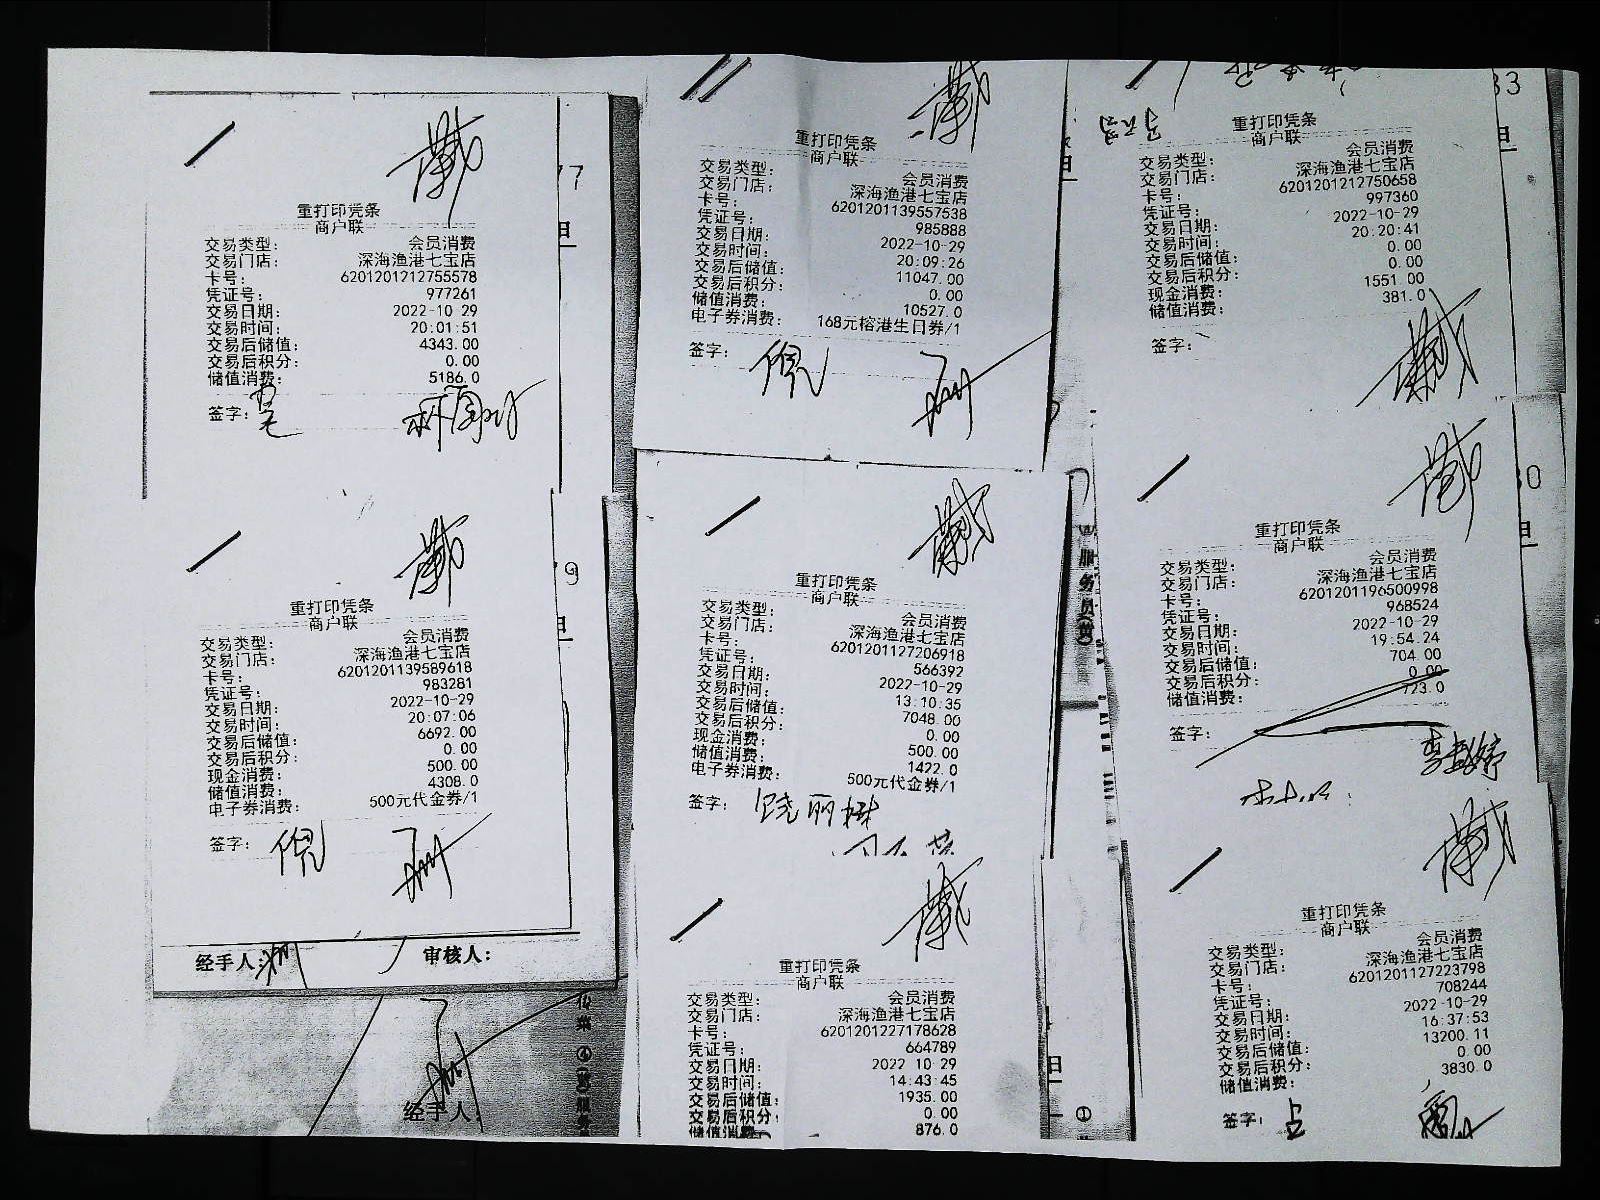 重打印凭条
商户联
交易类型： 会员消费
交易门店： 深海渔港七宝店
卡号： 6201201212755578
凭证号： 977261
交易日期： 2022-10 29
交易时间： 20:01:51
交易后储值： 4343.00
交易后积分： 0.00
储值消费： 5186.0
签字：
重打印凭条
商户联
交易类型： 会员消费
交易门店： 深海渔港七宝店
卡号： 6201201139589618
凭证号： 983281
交易日期： 2022-10-29
交易时间： 20:07:06
交易后储值： 6692.00
交易后积分： 0.00
现金消费： 500.00
储值消费： 4308.0
电子券消费： 500元代金券/1
签字： 倪
经手人： 审核人：
经手人
重打印凭条
商户联
交易类型： 会员消费
交易门店： 深海渔港七宝店
卡号： 6201201139557538
凭证号： 985888
交易日期： 2022-10-29
交易时间： 20:09:26
交易后储值： 11047.00
交易后积分： 0.00
储值消费： 10527.0
电子券消费： 168元榕港生日券/1
签字： 倪
重打印凭条
商户联
交易类型： 会员消费
交易门店： 深海渔港七宝店
卡号： 6201201127206918
凭证号： 566392
交易日期： 2022-10-29
交易时间： 13:10:35
交易后储值： 7048.00
交易后积分： 0.00
现金消费： 500.00
储值消费： 1422.0
电子券消费： 500元代金券/1
签字：
重打印凭条
商户联
交易类型： 会员消费
交易门店： 深海渔港七宝店
卡号： 6201201227178628
凭证号： 664789
交易日期： 2022 10 29
交易时间： 14:43:45
交易后储值： 1935.00
交易后积分： 0.00
储值消费 876.0
重打印凭条
商户联
交易类型： 会员消费
交易门店： 深海渔港七宝店
卡号： 6201201212750658
凭证号： 997360
交易日期： 2022-10-29
交易时间： 20:20:41
交易后储值： 0.00
交易后积分： 0.00
现金消费： 1551.00
储值消费： 381.0
签字：
重打印凭条
商户联
交易类型： 会员消费
交易门店： 深海渔港七宝店
卡号： 6201201196500998
凭证号： 968524
交易日期： 2022-10-29
交易时间： 19:54.24
交易后储值： 704 00
交易后积分： 0.00
储值消费： 723.0
签字：
重打印凭条
商户联
交易类型： 会员消费
交易门店： 深海渔港七宝店
卡号： 6201201127223798
凭证号： 708244
交易日期： 2022-10-29
交易时间： 16:37:53
交易后储值： 13200.11
交易后积分： 0.00
储值消费： 3830 0
签字： 占